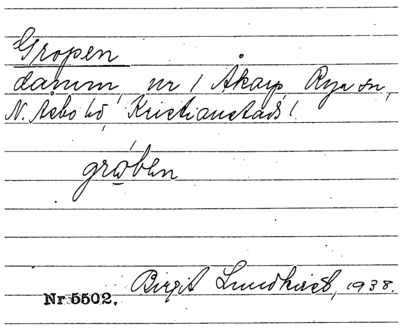 Gropen
därum, nr 1 Åkarp Rya sn,
N. Åsbo hd, Kristianstads l.
gro̲ben
Birgit Lundkvist, 1938.
Nr 5502.